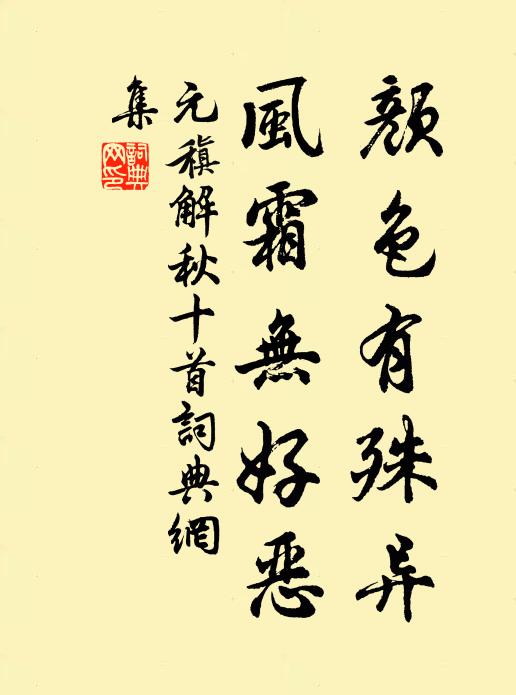 顏色有殊异
風霜無好恶
元稹解秋十首詞典網
集
詞典網印